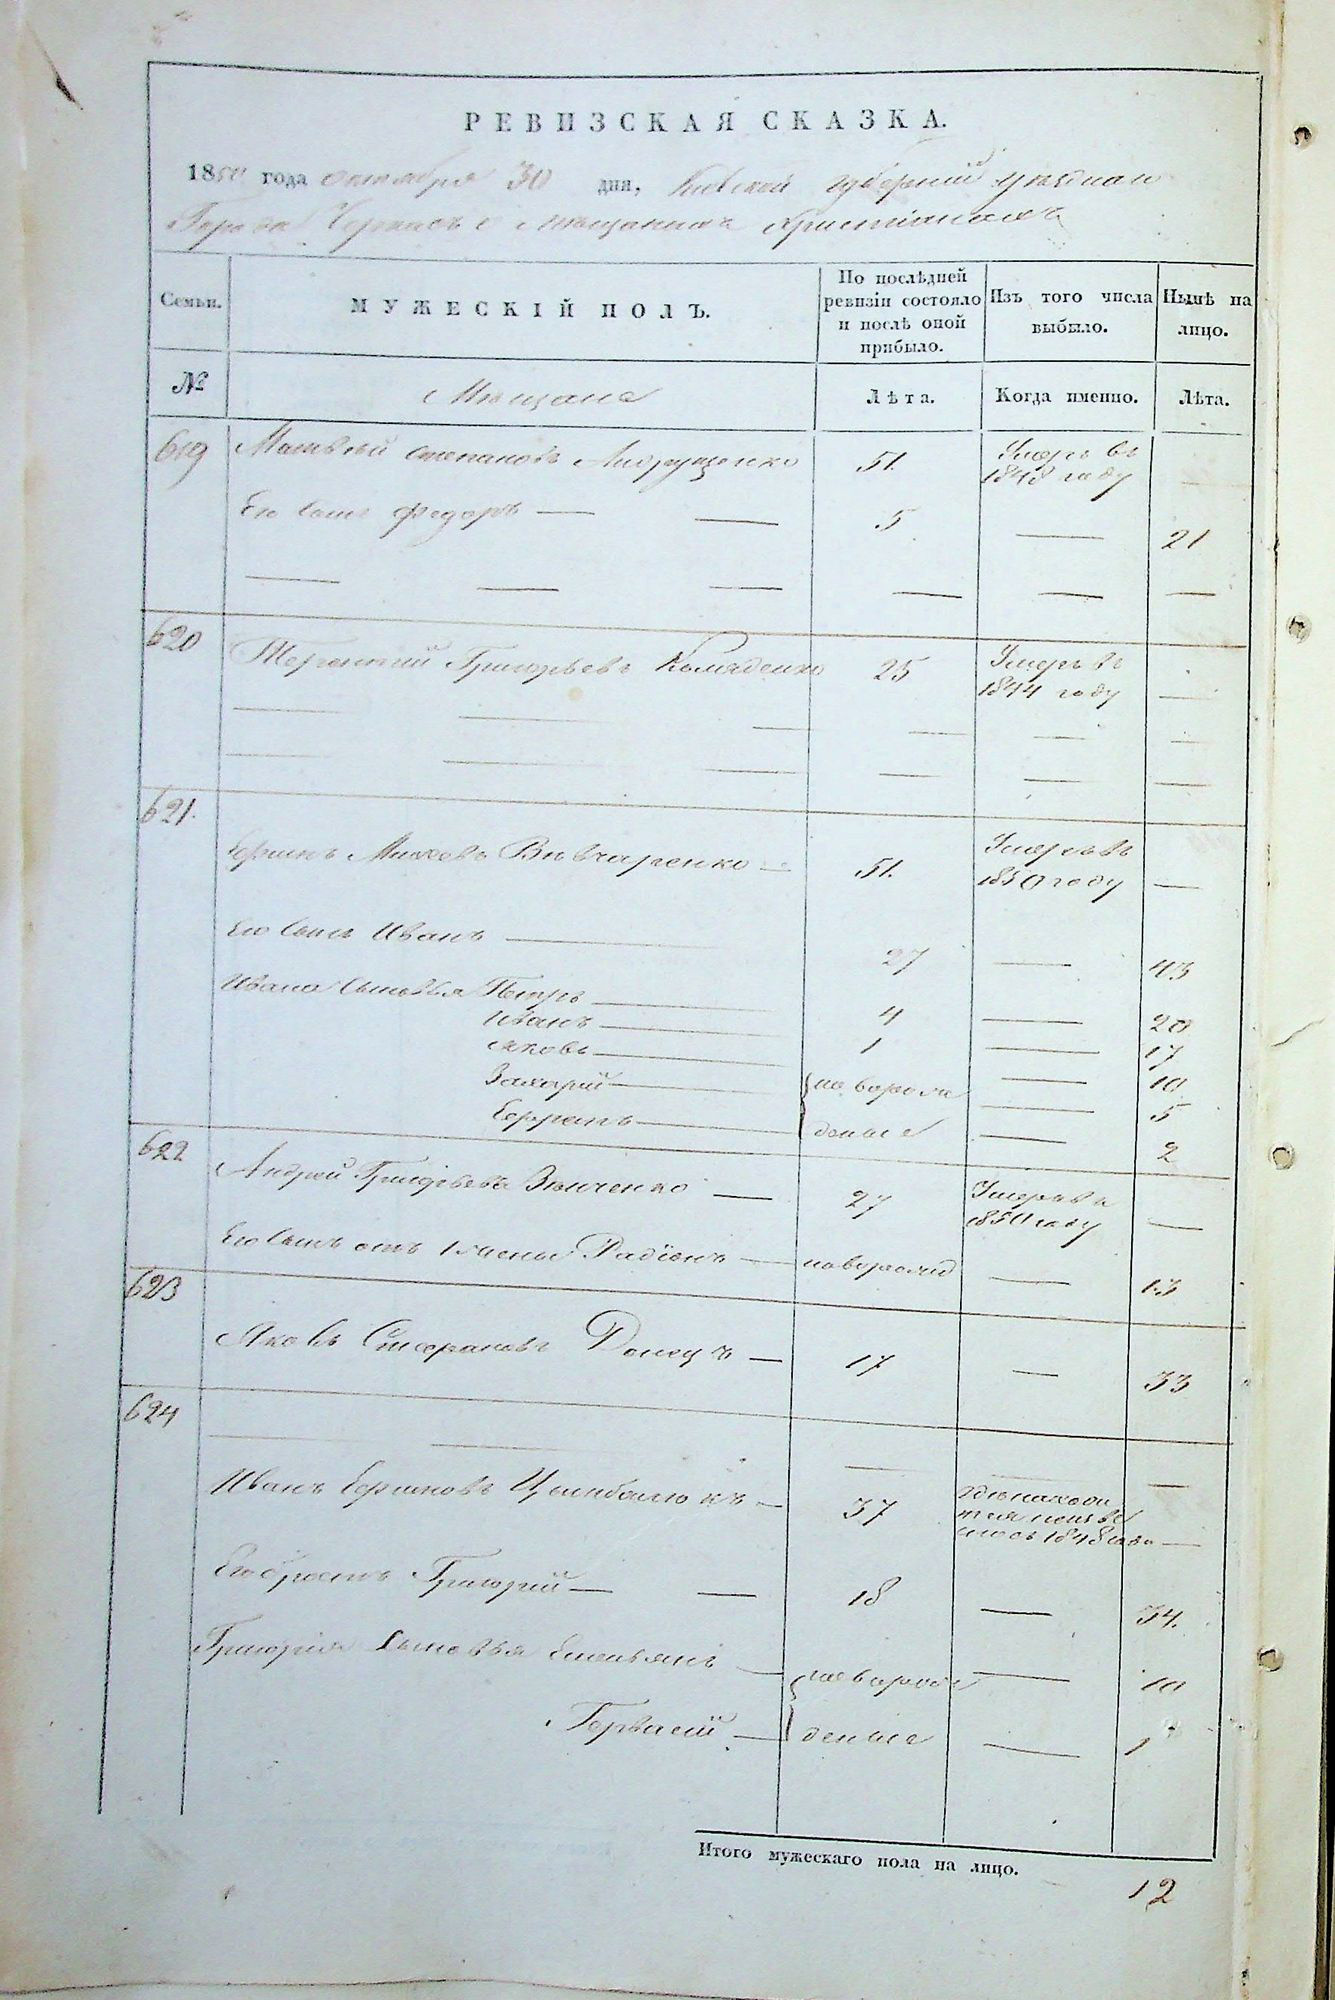 РЕВИЗСКАЯ СКАЗКА.
1850 года октября 30 дня, Киевской губернии уѣзднаго
Города Черкасъ о мещанахъ христіанахъ
Семьи. МУЖЕСКІЙ ПОЛЪ. По послѣдней ревизіи состояло и послѣ оной прибыло. Изъ того числа выбыло. Нынѣ на лицо.
№ Мещане Лѣта. Когда именно. Лѣта.
619 Матвѣй Степановъ Андрущенко 51. Умеръ въ 1848 году —
Его сынъ Федоръ — — 5 — 21
— — — — — —
620 Терентий Григорьевъ Коляденко 25 Умеръ въ 1844 году —
— — — — — —
— — — — — —
621. Михеевъ Вивчаренко — 51. Умеръ въ 1850 году —
Его сынъ Иванъ — 27 — 43
Ивана сыновья Петръ — 4 — 20
Иванъ — 1 — 17
Яковъ — — 10
Захарий — новорож — 5
— денные — 2
622 Андрей Григорьевъ Зинченко — 27 Умеръ въ 1850 году —
Его сынъ отъ жены Радіонъ — новорожд — 13
623
Яковъ Донецъ — 17 — 33
624
— — — — —
Иванъ Цымбалюкъ — 37 где находи тся неизвѣ стно съ 1848 года —
Его братъ Григорий — — 18 — 34.
Григорія сыновья Емельянъ — новорож — 10
Герасий — денные — 1
Итого мужескаго пола на лицо.
12